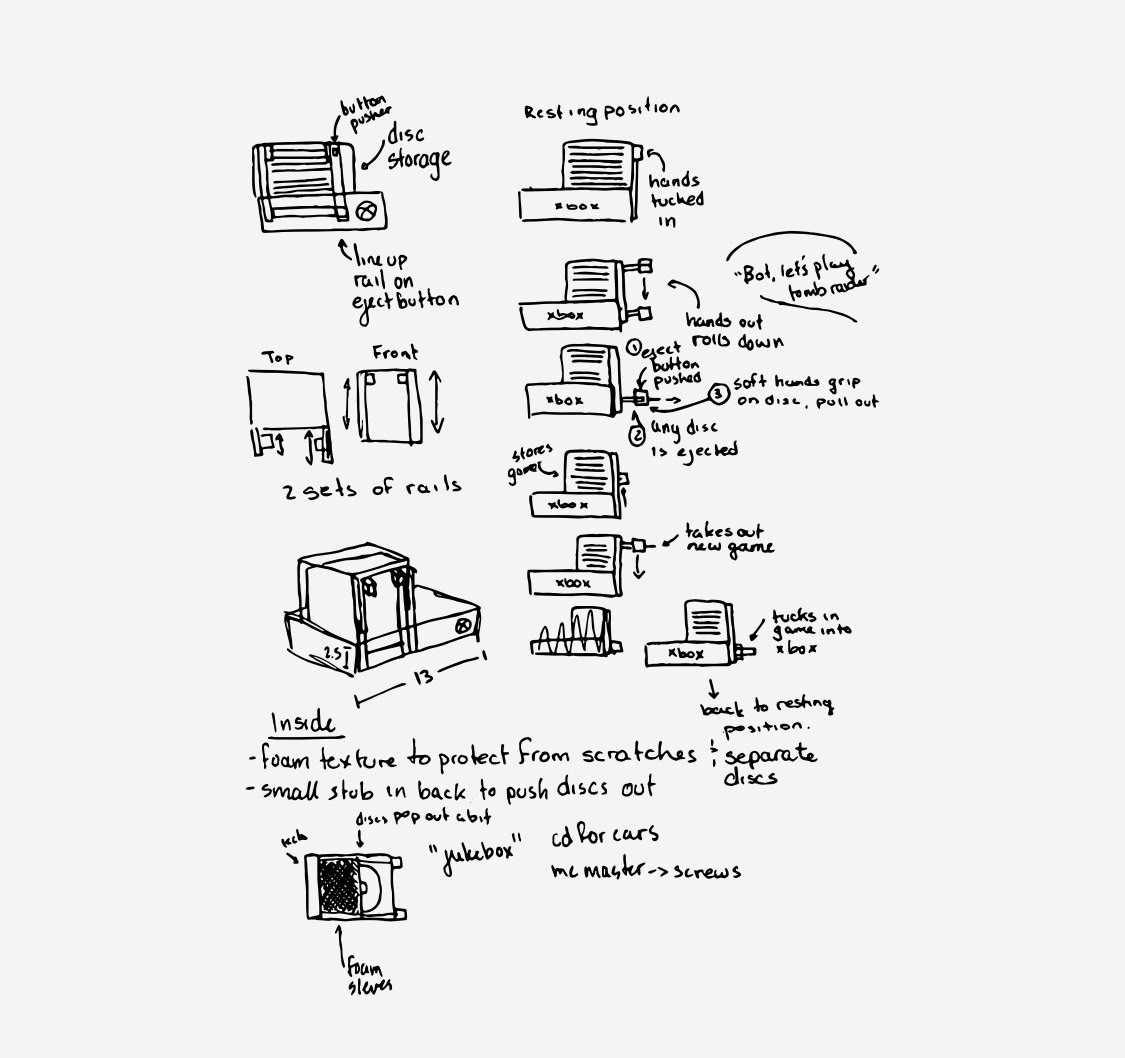 button
pusher
disc
storage
line up
rail on
eject button
Top
Front
2 sets of rails
2.5
13
Resting position
xbox
hands
tucked
in
"Bot, let's play
tomb raider"
xbox
hands out
rolls down
① eject
button
pushed
xbox
③ soft hands grip
on disc, pull out
② any disc
is ejected
stores
game
xbox
takes out
new game
xbox
xbox
tucks in
game into
xbox
back to resting
position.
Inside
- foam texture to protect from scratches & separate
discs
- small stub in back to push discs out
discs pop out a bit
"jukebox"
cd for cars
mc master -> screws
foam
sleves